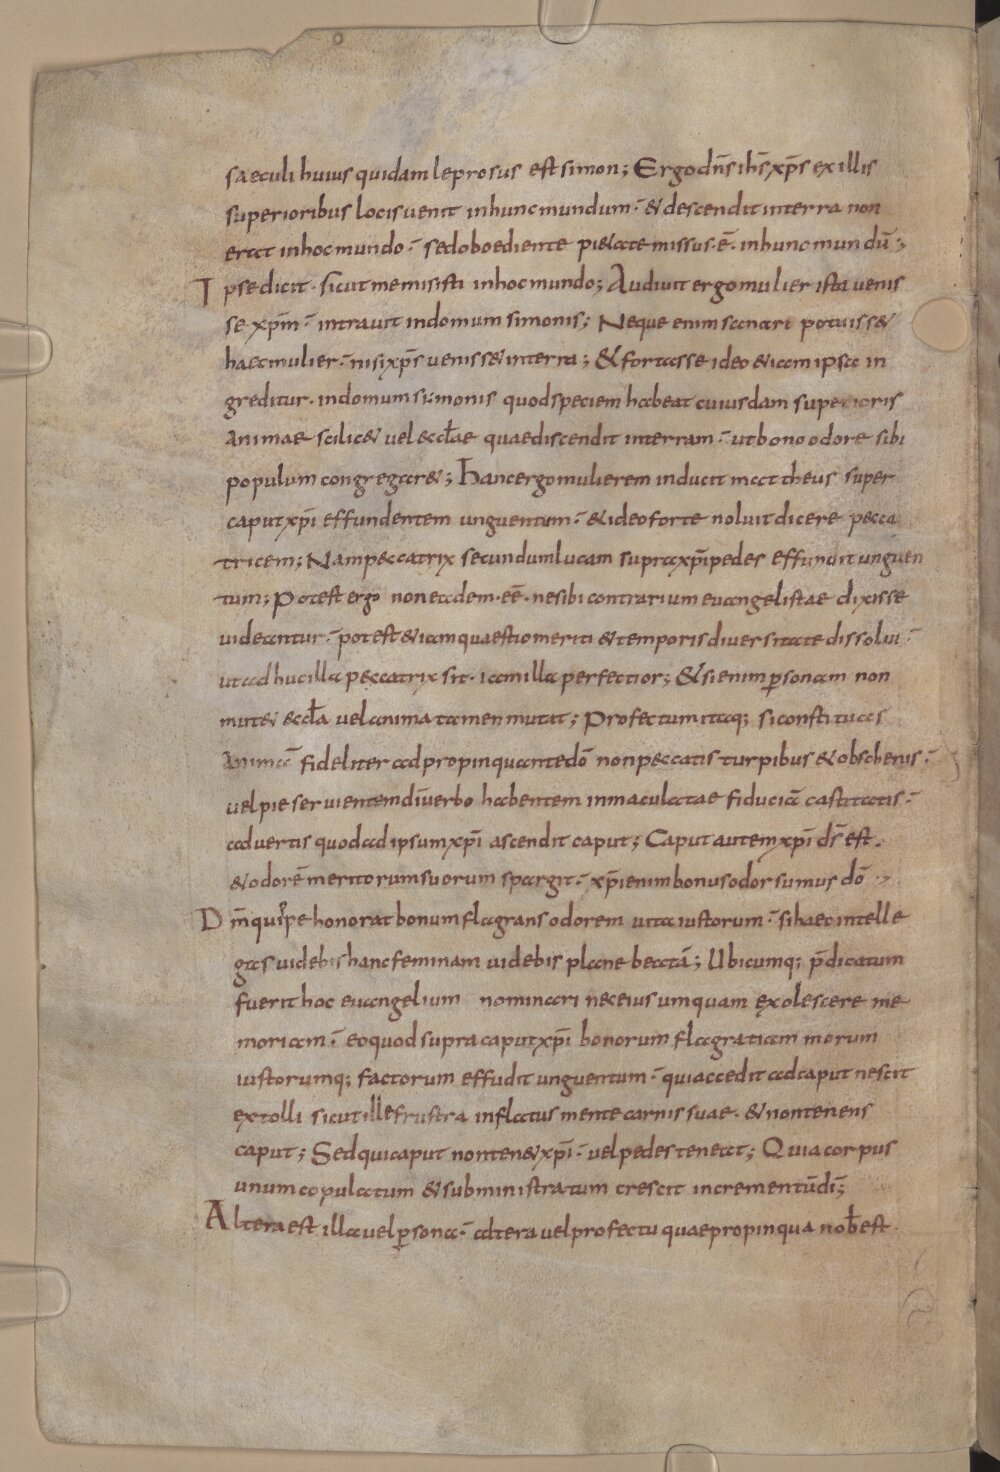 saeculi huius quidam leprosus est simon; Ergo dn̄s ih̄s xp̄s ex illis
superioribus locis uenit in hunc mundum· & descendit in terra non
erat in hoc mundo· sed oboediente pietate missus· ē· in hunc mundū;
Ipse dicit· sicut me misisti in hoc mundo; Audiuit ergo mulier ista uenis
se xp̄m· intrauit in domum simonis; Neque enim sanari potuiss&
haec mulier· nisi xp̄s ueniss& in terra; & fortasse ideo &iam ipsa in
greditur· in domum simonis quod speciem habeat cuiusdam superioris
animae scilic& uel eccl̄ae quae discendit in terram· ut bono odore sibi
populum congregar&; Hanc ergo mulierem inducit mattheus super
caput xp̄i effundentem unguentum· & ideo forte noluit dicere pecca
tricem; Nam peccatrix secundum lucam supra xp̄i pedes effundit unguen
tum; Potest ergo non eadem· eē· ne sibi contrarium euangelistae dixisse
uideantur· potest &iam quaestio meriti & temporis diuersitate dissolui·
ut adhuc illa peccatrix sit· iam illa perfectior; & si enim p̱sonam non
mut& eccl̄a uel anima tamen mutat; Profectum itaq; si constituas
Animā fideliter adpropinquante dō non peccatis turpibus & obschenis·
uel pie seruientem dī uerbo habentem inmaculatae fiduciā castitatis·
aduertis quod ad ipsum xp̄i ascendit caput; Caput autem xp̄i d̄s est·
& odorē meritorum suorum spargit· xp̄i enim bonus odor sumus dō
Dm̄ quippe honorat bonum flagrans odorem uita iustorum· si haec intelle
gas uidebis hanc feminam uidebis plane beatā; Ubicumq; p̄dicatum
fuerit hoc euangelium nominari nec eius umquam exolescere me
moriam· eo quod supra caput xp̄i bonorum flagratiam morum
iustorumq; factorum effudit unguentum· qui accedit ad caput nescit
extolli sicut ille frustra inflatus mente carnis suae· & non tenens
caput; Sed qui caput non ten& xp̄i· uel pedes teneat; Quia corpus
unum copulatum & subministratum crescit incrementū dī;
Altera est illa uel p̱sona· altera uel profectu quae propinqua nob̄ est·